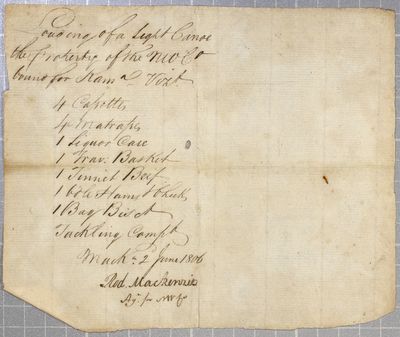 Loading of a Light Canoe
the Property of the NWCo
bound for Kam a Vizt
4 Capotts
4 Matrass
1 Liquor Case
1 Trav. Basket
1 Tinnit Beef
1 Hams &
1 Bag Bisct
Tackling Compt
Mack: 2 June 1806
Rod. Mackenzie
Ag. for NWCo